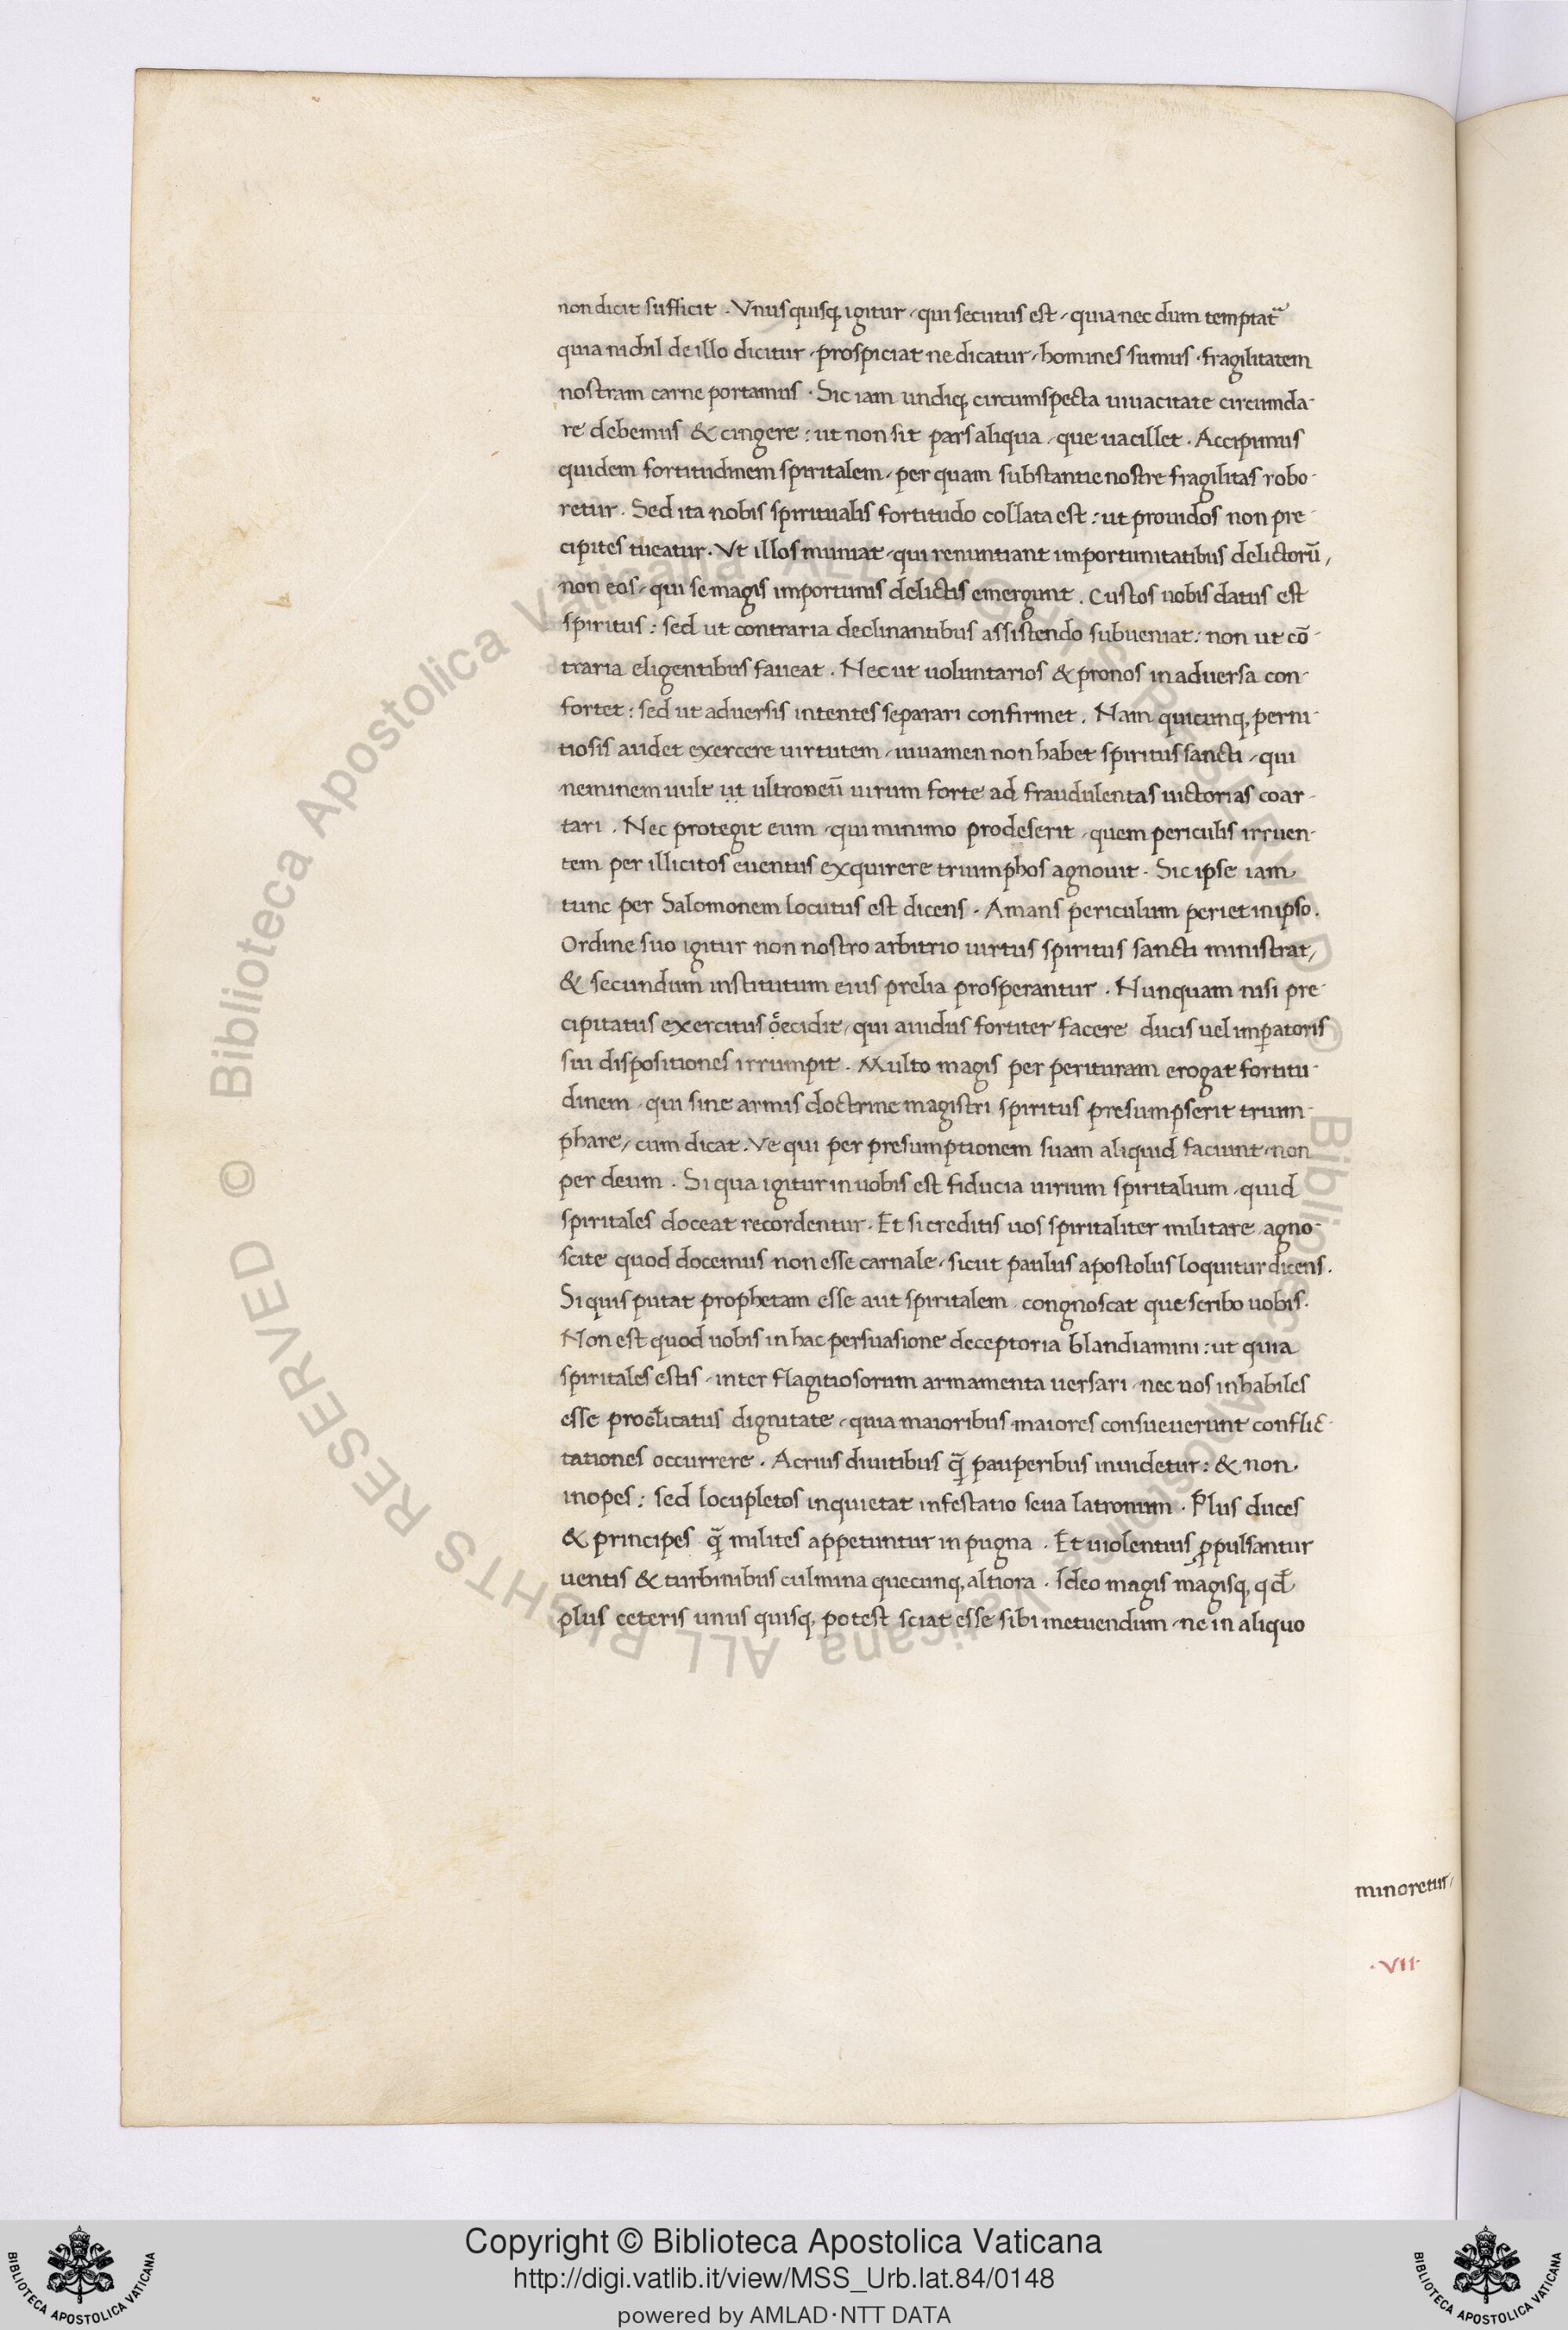 non dicit sufficit . Vnusquisq; igitur , qui secutus est , quia nec dum temptat᷑
quia nichil de illo dicitur , prospiciat ne dicatur , homines sumus , fragilitatem
nostram carne portamus . Sic iam undiq; circumspecta uiuacitate circumda-
re debemus & cingere : ut non sit pars aliqua , que uacillet . Accipimus
quidem fortitudinem spiritalem , per quam substantie nostre fragilitas robo-
retur . Sed ita nobis spiritualis fortitudo collata est : ut prouidos non pre-
cipites tueatur . Vt illos muniat , qui renuntiant importunitatibus delictorū ,
non eos , qui se magis importunis delictis emergunt . Custos uobis datus est
spiritus : sed ut contraria declinantibus assistendo subueniat : non ut cō-
traria eligentibus faueat . Nec ut uoluntarios & pronos in aduersa con-
fortet : sed ut aduersis intentes separari confirmet . Nam quicunq; perni-
tiosis audet exercere uirtutem , iuuamen non habet spiritus sancti , qui
neminem uult ut ultroneū uirum forte ad fraudulentas uictorias coar-
tari . Nec protegit eum , qui minimo prodeserit , quem periculis irruen-
tem per illicitos euentus exquirere triumphos agnouit . Sic ipse iam
tunc per Salomonem locutus est dicens . Amans periculum periet in ipso .
Ordine suo igitur non nostro arbitrio uirtus spiritus sancti ministrat ,
& secundum institutum eius prelia prosperantur . Nunquam nisi pre-
cipitatus exercitus cecidit , qui auidus fortiter facere ducis uel imp̄atoris
sui dispositiones irrumpit . Multo magis per perituram erogat fortitu-
dinem , qui sine armis doctrine magistri spiritus presumpserit trium-
phare , cum dicat . Ve qui per presumptionem suam aliquid faciunt , non
per deum . Si qua igitur in uobis est fiducia uirium spiritalium , quid
spiritales doceat recordentur . Et si creditis uos spiritaliter militare , agno-
scite quod docemus non esse carnale , sicut paulus apostolus loquitur dicens .
Si quis putat prophetam esse aut spiritalem , congnoscat que scribo uobis .
Non est quod uobis in hac persuasione deceptoria blandiamini : ut quia
spiritales estis , inter flagitiosorum armamenta uersari , nec uos inhabiles
esse procl̄itatus dignitate , quia maioribus maiores consueuerunt conflic-
tationes occurrere . Acrius diuitibus q̄ pauperibus inuidetur : & non
inopes : sed locupletos inquietat infestatio seua latronum . Plus duces
& principes q̄ milites appetuntur in pugna . Et uiolentius ꝓpulsantur
uentis & turbinibus culmina quecunq; altiora . Ideo magis magisq; qd̄
plus ceteris unus quisq; potest sciat esse sibi metuendum , ne in aliquo
minoretur ,
. VII .
© Biblioteca Apostolica Vaticana ALL RIGHTS RESERVED
© Biblioteca Apostolica Vaticana ALL RIGHTS RESERVED
Copyright © Biblioteca Apostolica Vaticana
http://digi.vatlib.it/view/MSS_Urb.lat.84/0148
powered by AMLAD·NTT DATA
BIBLIOTECA APOSTOLICA VATICANA
BIBLIOTECA APOSTOLICA VATICANA